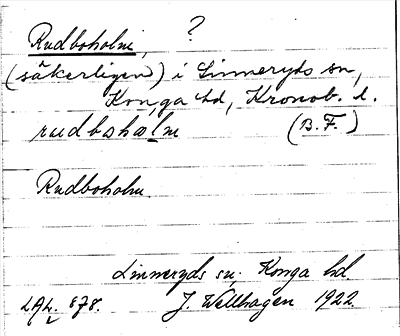 Rudboholm, ?
(säkerligen) i Linneryds sn,
Konga hd, Kronob. l.
rudboholm (B.F.)
Rudboholm.
Linneryds sn; Konga hd
LAL. 878. J. Wellhagen 1922.